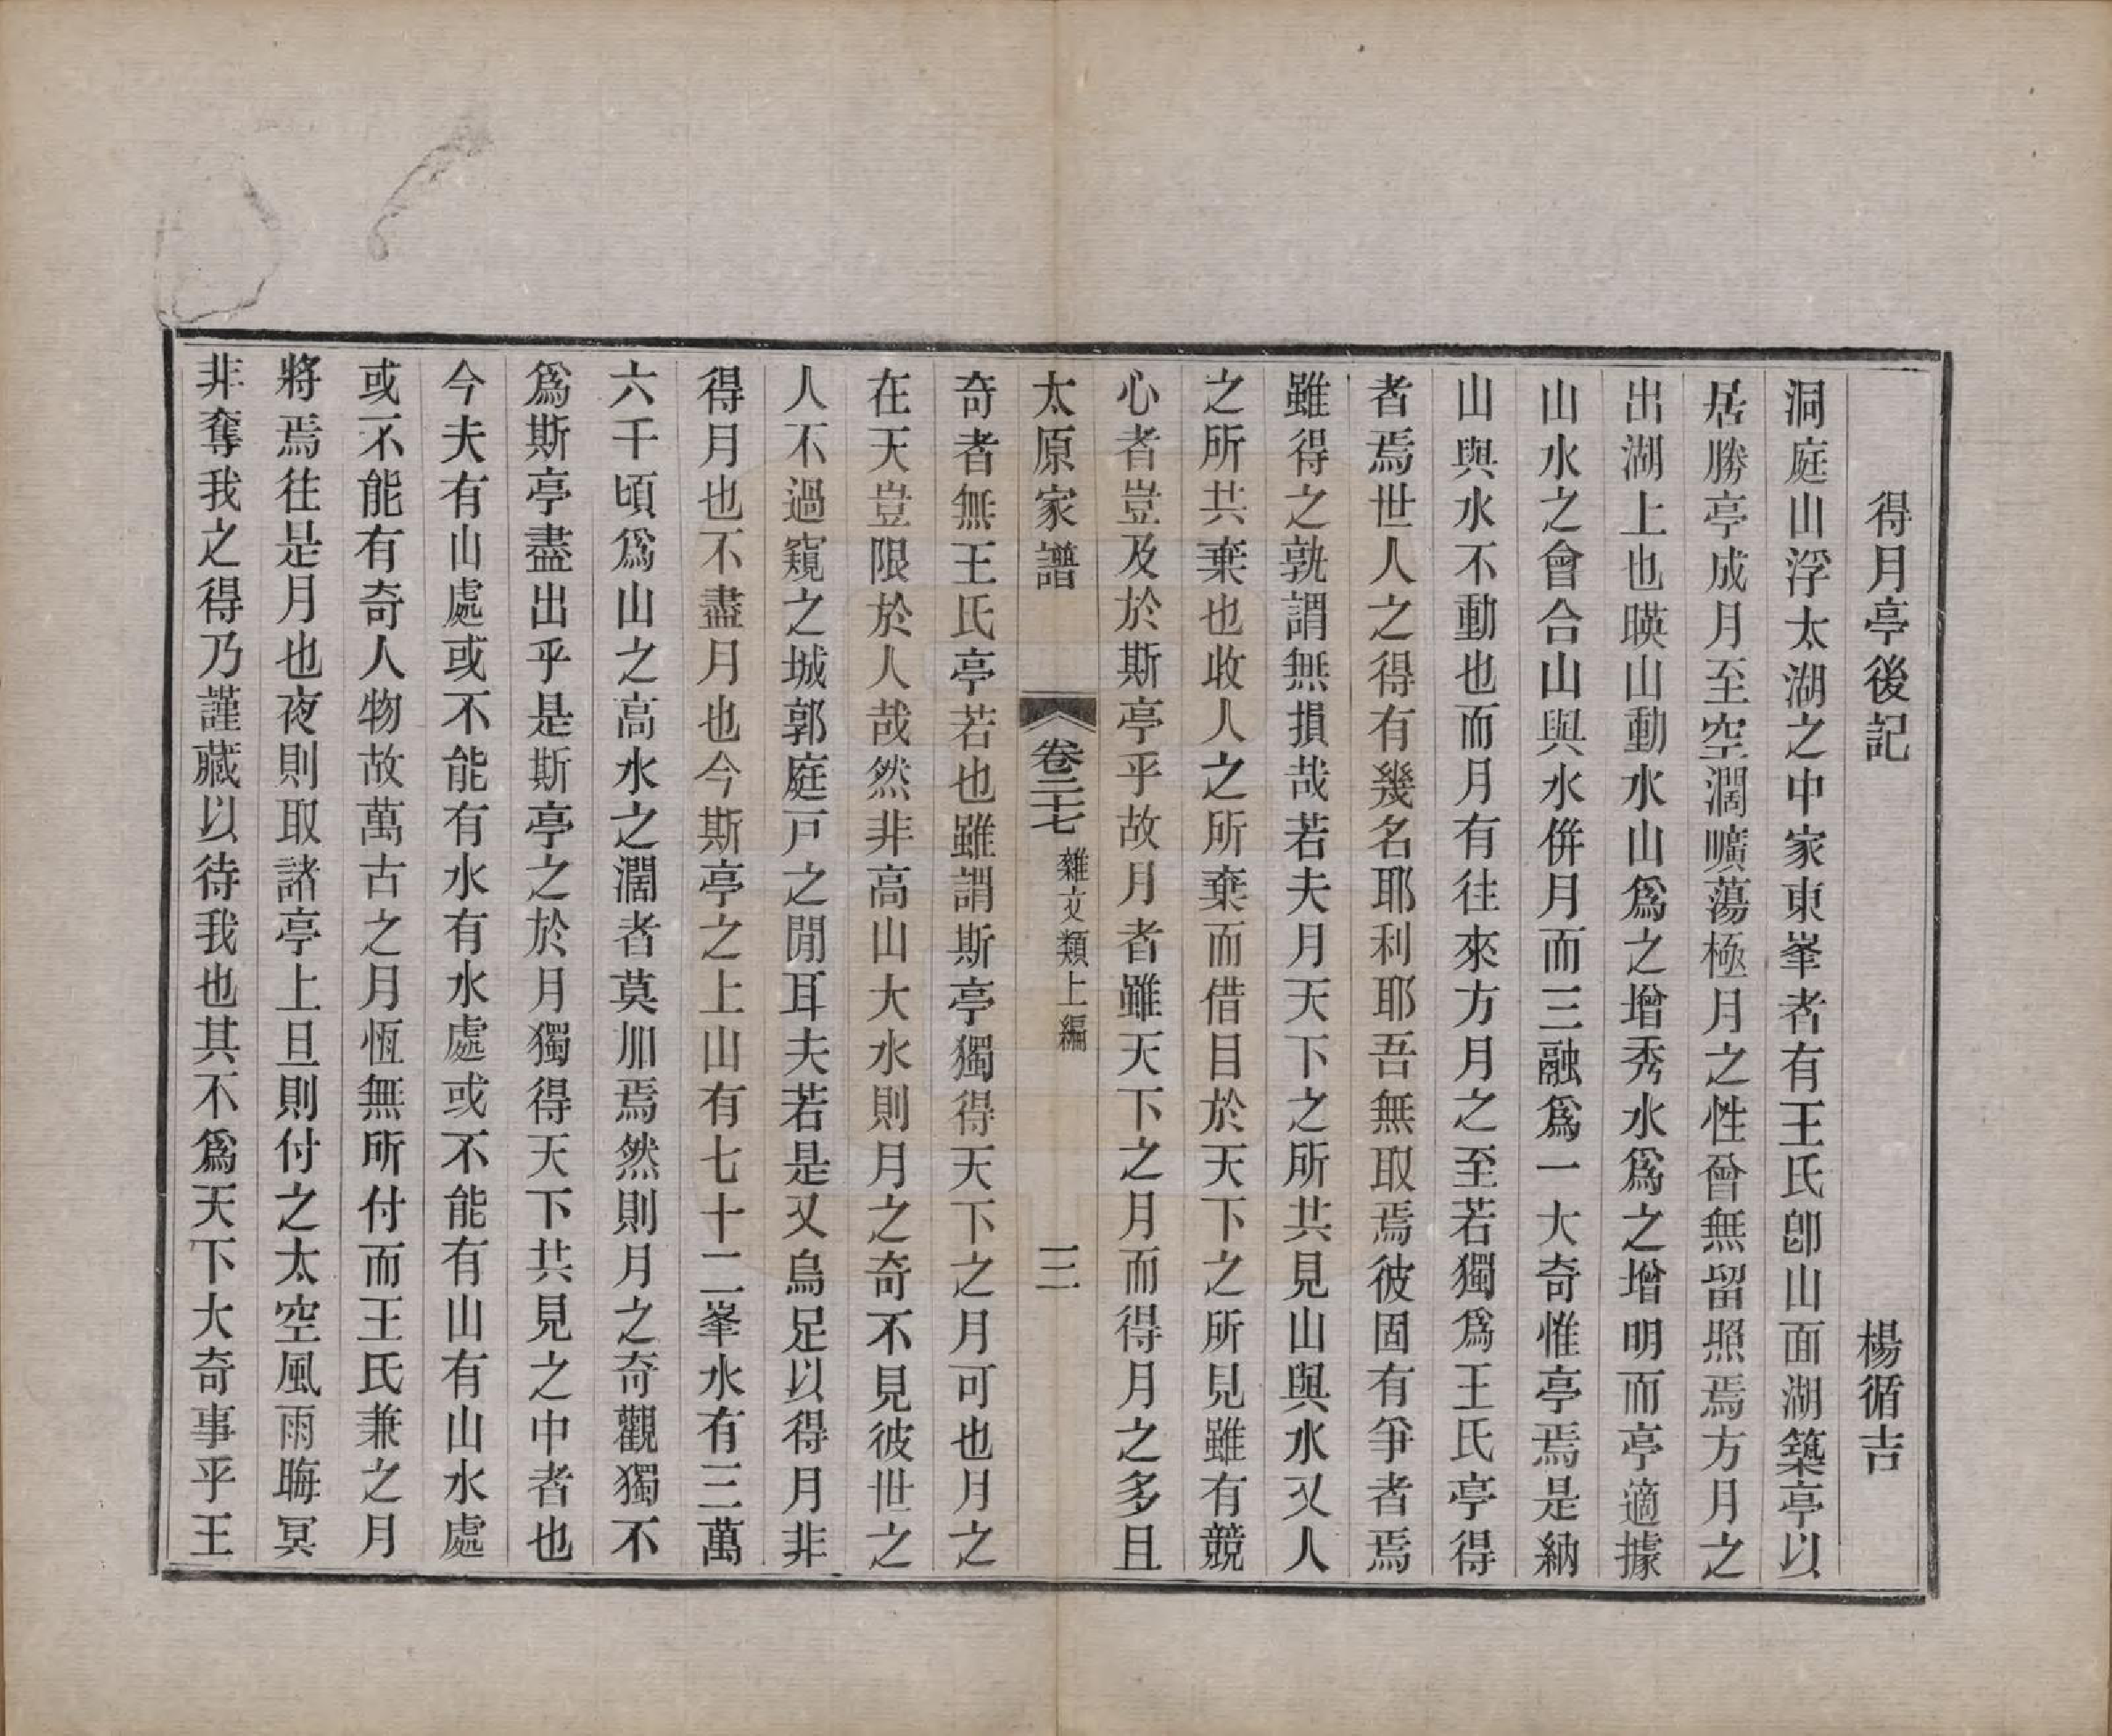 得月亭後記　楊循吉
洞庭山浮太湖之中家東峯者有王氏卽山面湖築亭以
居勝亭成月至空濶曠蕩極月之性曾無留照焉方月之
出湖上也暎山動水山爲之增秀水爲之增明而亭適據
山水之會合山與水併月而三融爲一大奇惟亭焉是納
山與水不動也而月有往來方月之至若獨爲王氏亭得
者焉世人之得有幾名耶利耶吾無取焉彼固有爭者焉
雖得之孰謂無損哉若夫月天下之所共見山與水又人
之所共棄也收人之所棄而借目於天下之所見雖有競
心者豈及於斯亭乎故月者雖天下之月而得月之多且
太原家譜　卷二十七　雜文類上編　三
奇者無王氏亭若也雖謂斯亭獨得天下之月可也月之
在天豈限於人哉然非高山大水則月之奇不見彼世之
人不過窺之城郭庭戸之閒耳夫若是又烏足以得月非
得月也不盡月也今斯亭之上山有七十二峯水有三萬
六千頃爲山之高水之濶者莫加焉然則月之奇觀獨不
爲斯亭盡出乎是斯亭之於月獨得天下共見之中者也
今夫有山處或不能有水有水處或不能有山有山水處
或不能有奇人物故萬古之月恆無所付而王氏兼之月
將焉往是月也夜則取諸亭上旦則付之太空風雨晦冥
非奪我之得乃謹藏以待我也其不爲天下大奇事乎王